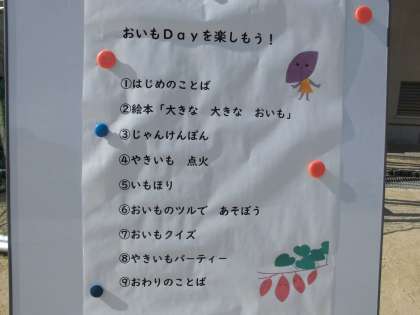 おいもDayを楽しもう！
①はじめのことば
②絵本「大きな　大きな　おいも」
③じゃんけんぽん
④やきいも　点火
⑤いもほり
⑥おいものツルで　あそぼう
⑦おいもクイズ
⑧やきいもパーティー
⑨おわりのことば